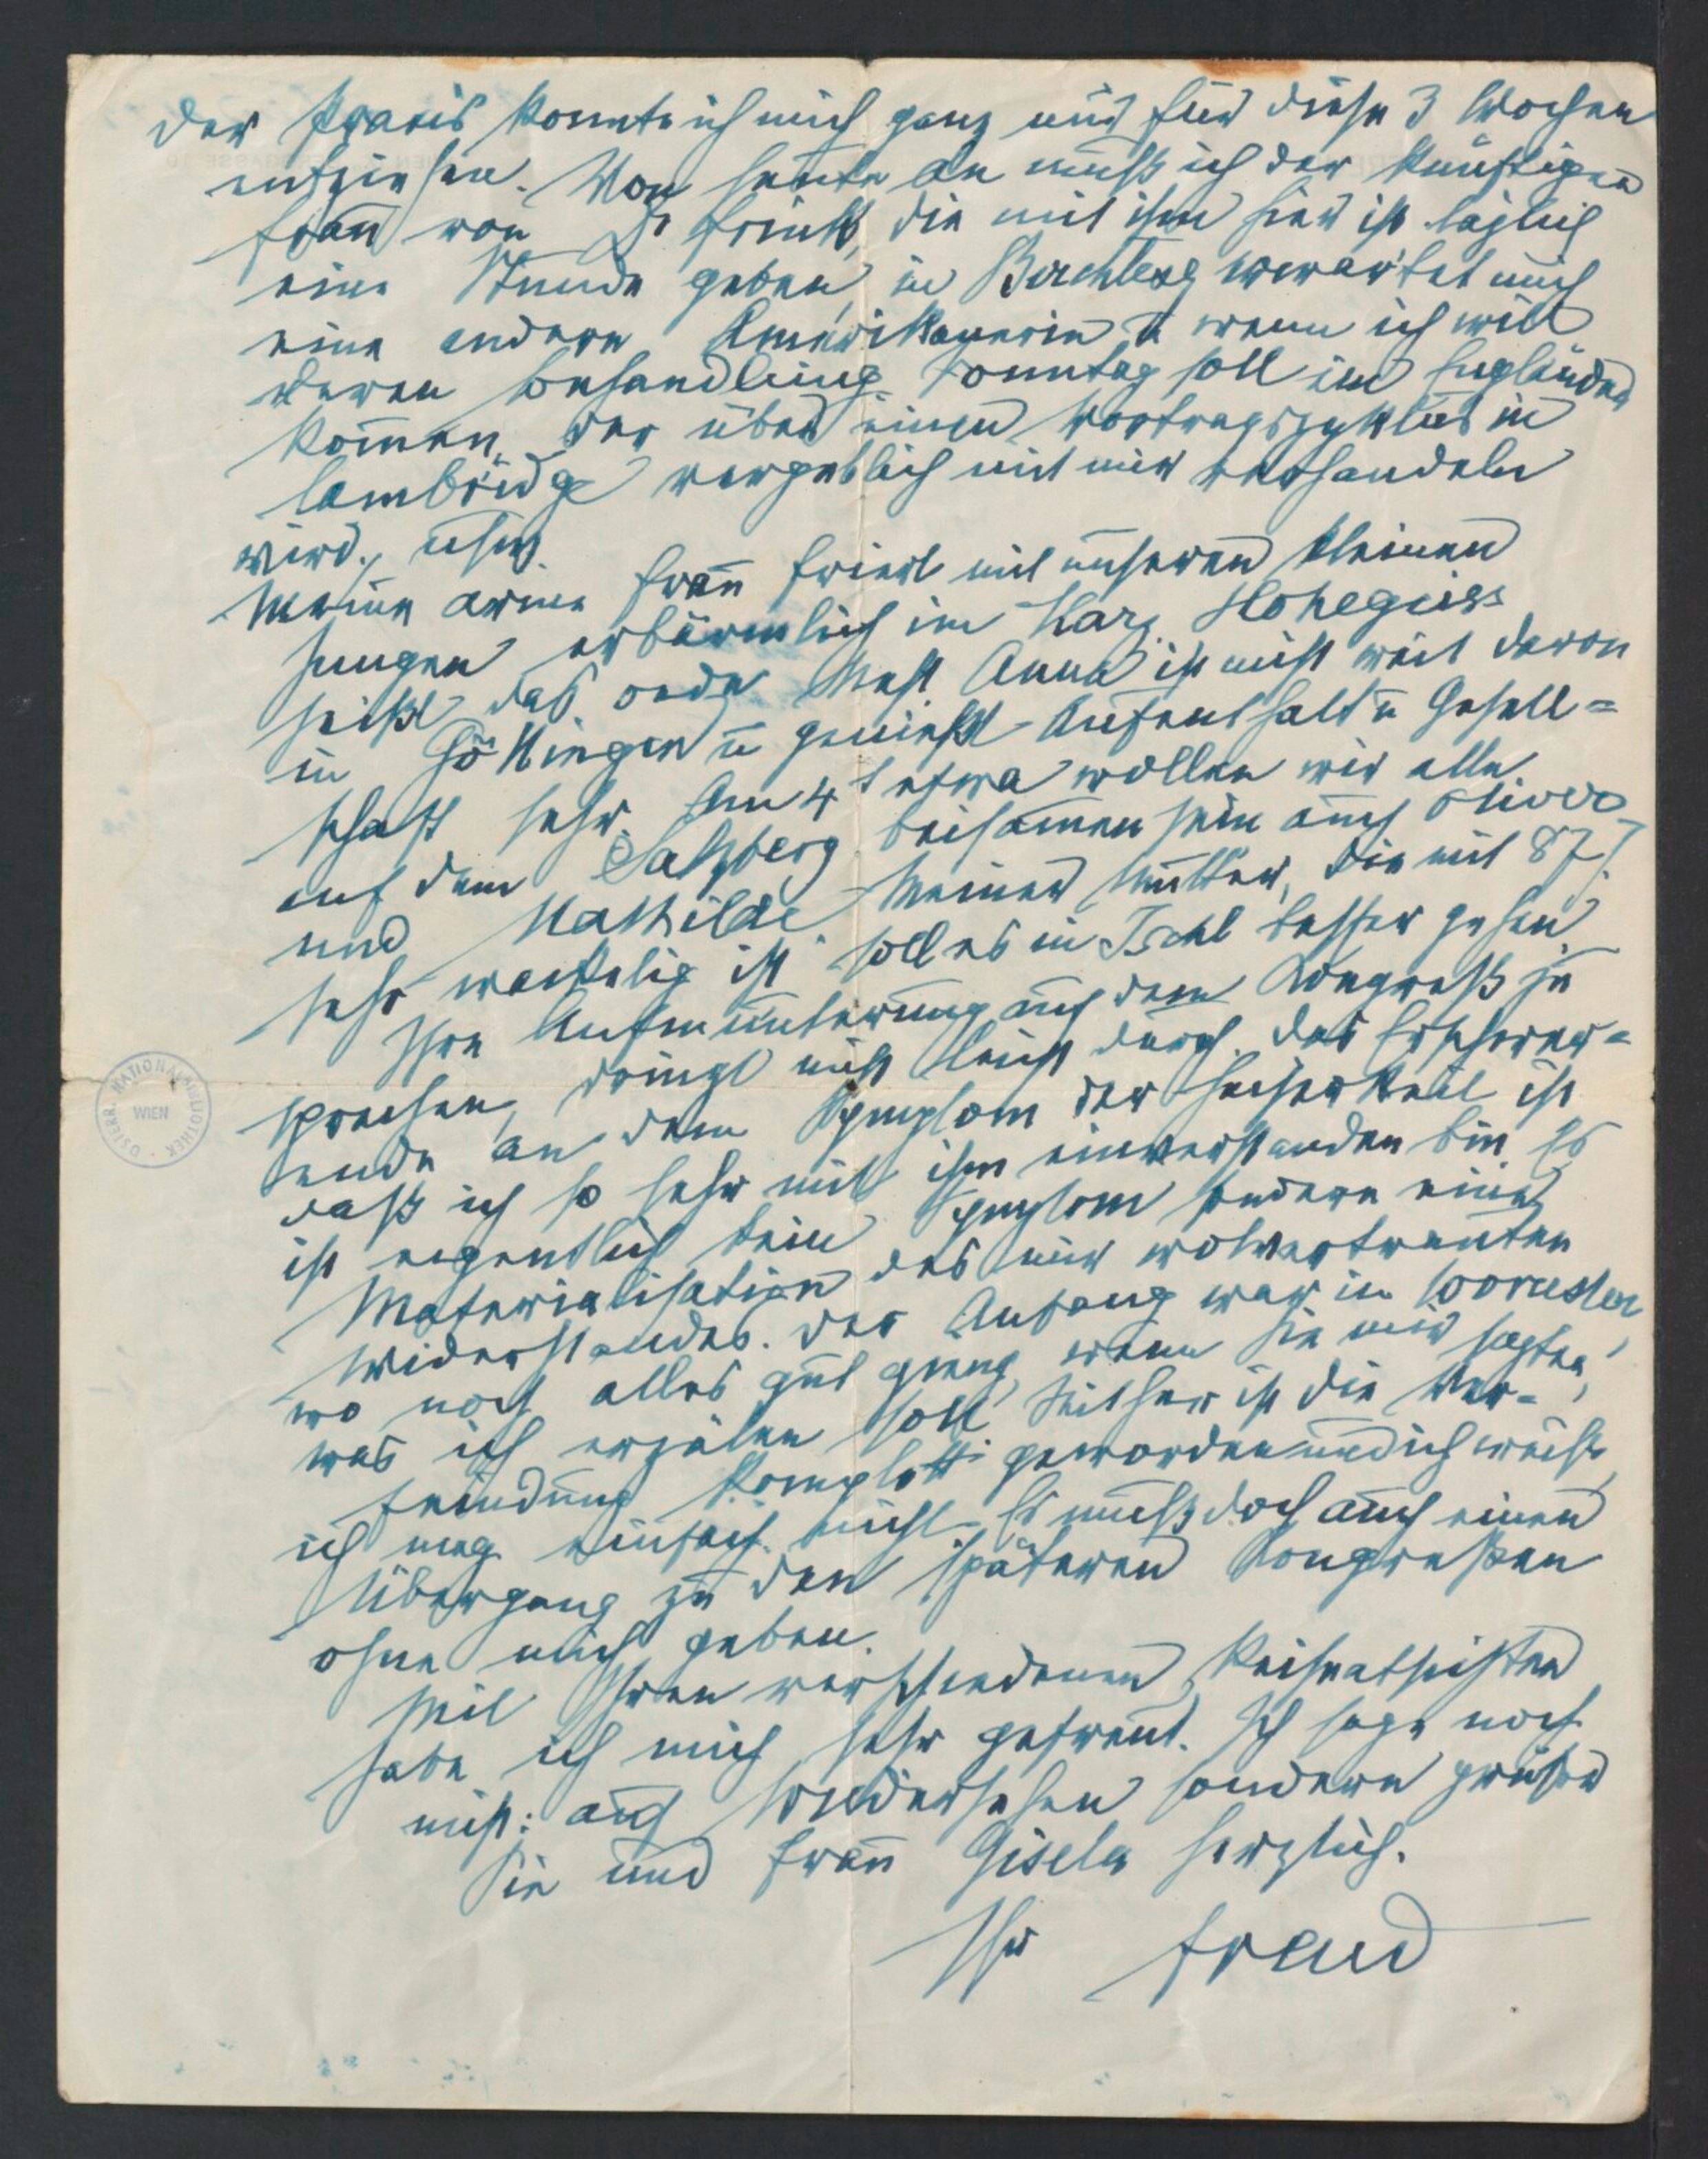 der Praxis konnte ich mich ganz nur für diese 3 Wochen
entziehen. Von heute an muß ich der künftigen
Frau von Dr Frink, die mit ihm hier ist täglich
eine Stunde geben, in Berchtesg erwartet mich
eine andere Amerikanerin u wenn ich will
deren Behandlung. Sonntag soll ein Engländer
kom̄en, der über einen Vortragszyklus in
Cambridge vergeblich mit mir verhandeln
wird, usw.
Meine arme Frau friert mit unseren kleinen
Jungen erbärmlich im Harz. Hohegeiss
heißt das oede Nest. Anna ist nicht weit davon
in Göttingen u genießt Aufenthalt u Gesell=
schaft sehr. Am 4t etwa wollen wir alle
auf dem Salzberg beisam̄en sein auch Oliver
und Mathilde. Meiner Mutter, die mit 87 J.
sehr wackelig ist soll es in Ischl besser gehen.
Ihre Aufmunterung auf dem Kongreß zu
sprechen, dringt nicht leicht durch. Das Erschwer=
ende an dem Symptom der Heiserkeit ist
daß ich so sehr mit ihm einverstanden bin. Es
ist eigentlich kein Symptom sondern eine
Materialisation des mir wolvertrauten
Widerstandes. Der Anfang war in Worcester,
wo noch alles gut gieng, wenn Sie mir sagten,
was ich erzälen soll. Seither ist die Ver=
feindung komplett geworden und ich weiß,
ich mag einfach nicht. Es muß doch auch einen
Übergang zu den späteren Kongreßen
ohne mich geben.
Mit Ihren verschiedenen
habe ich mich sehr gefreut. Ich sage noch
nicht: auf Wiedersehen sondern grüße
Sie und Frau Gisela herzlich.
Ihr Freud
ÖSTERR. NATIONALBIBLIOTHEK
WIEN